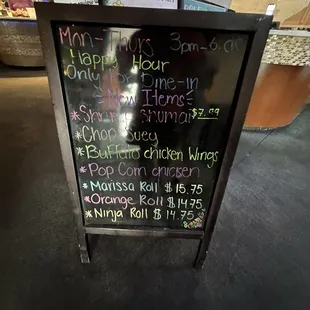 Mon-Thurs 3pm-6
Happy Hour
Only for Dine-in
New Items
*Shrimp Shumai $7.99
*Chop Suey
*Buffalo chicken Wings
*Pop Corn chicken
*Marissa Roll $15.75
*Orange Roll $14.75
*Ninja Roll $14.75